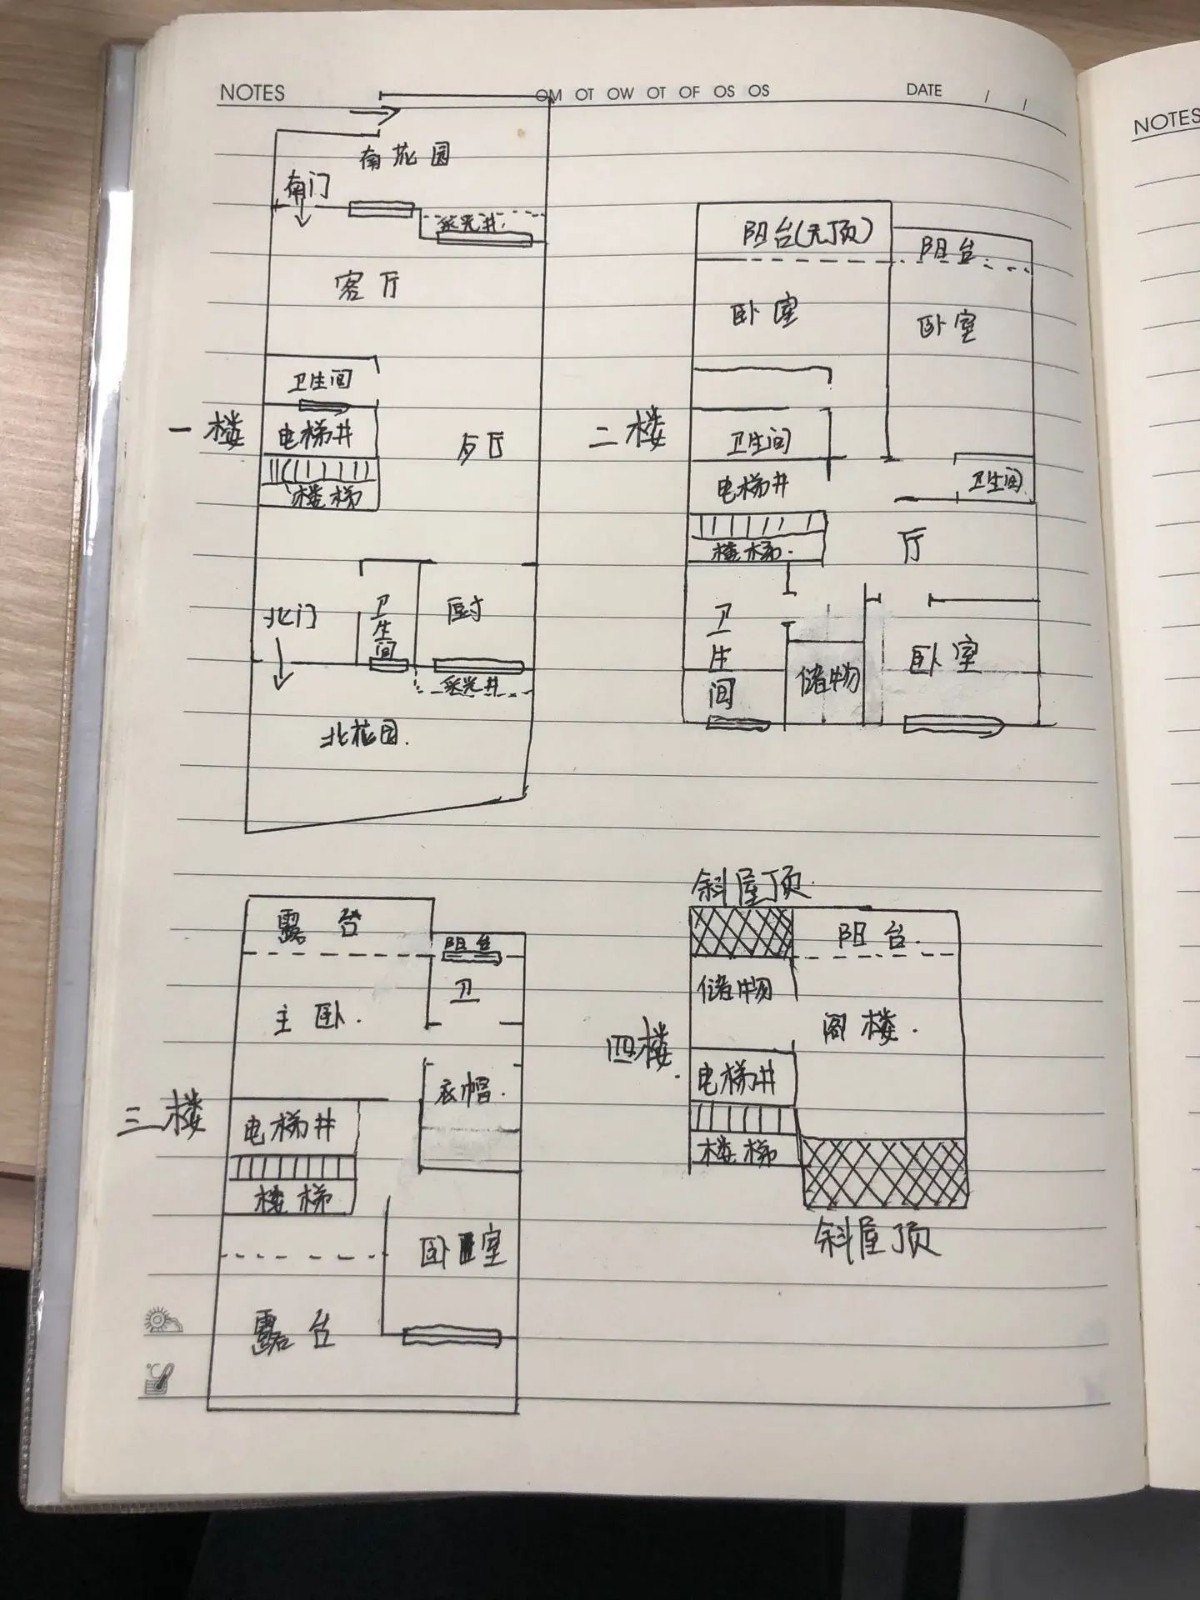 NOTES
OM OT OW OT OF OS OS
DATE / /
NOTES
南花园
南门
采光井
客厅
卫生间
一楼
电梯井
楼梯
歺厅
北门
卫生间
厨
采光井
北花园.
阳台(无顶)
阳台
卧室
卧室
二楼
卫生间
电梯井
卫生间
楼梯.
厅
卫生间
储物
卧室
露台
阳台
主卧.
卫
衣帽.
三楼
电梯井
楼梯
卧室
露台
斜屋顶.
阳台.
储物
阁楼.
四楼.
电梯井
楼梯
斜屋顶